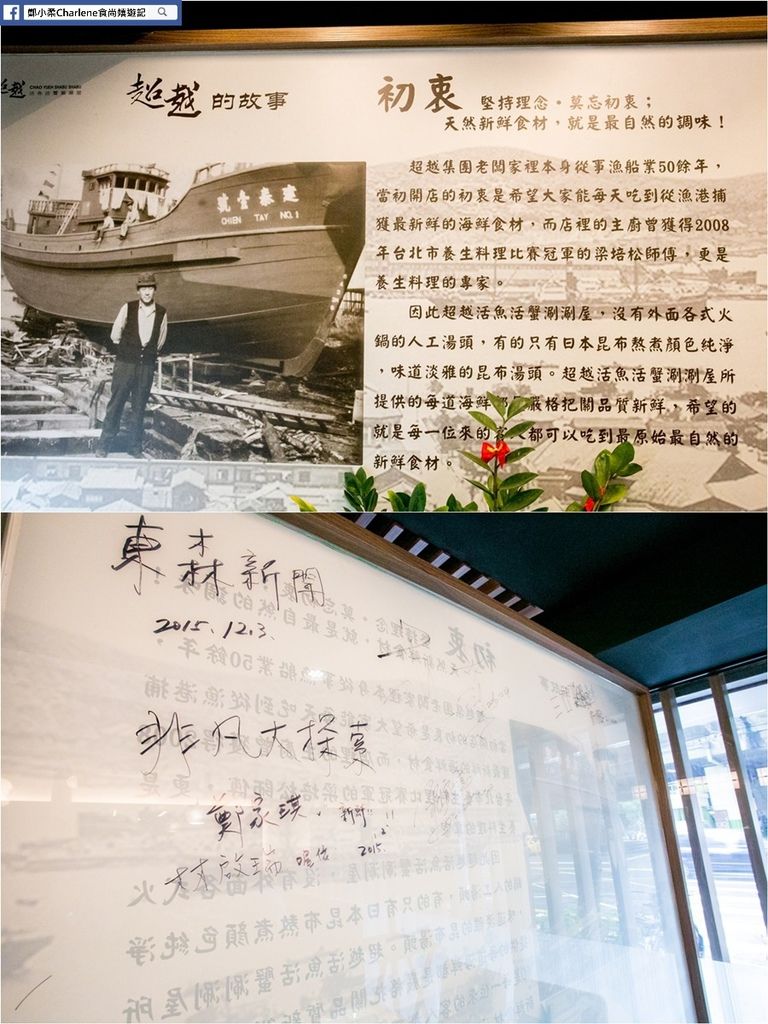 鄭小柔Charlene食尚嬉遊記
超越
CHAO YUEH SHABU SHABU
超越的故事
初衷 堅持理念・莫忘初衷；
天然新鮮食材，就是最自然的調味！
建泰壹號
CHIEN TAY NO.1
超越集團老闆家裡本身從事漁船業50餘年，
當初開店的初衷是希望大家能每天吃到從漁港捕
獲最新鮮的海鮮食材，而店裡的主廚曾獲得2008
年台北市養生料理比賽冠軍的梁培松師傅，更是
養生料理的專家。
因此超越活魚活蟹涮涮屋，沒有外面各式火
鍋的人工湯頭，有的只有日本昆布熬煮顏色純淨
，味道淡雅的昆布湯頭。超越活魚活蟹涮涮屋所
提供的每道海鮮都 嚴格把關品質新鮮，希望的
就是每一位來的客人都可以吃到最原始最自然的
新鮮食材。
東森新聞
2015.12.3.
非凡大探索
鄭家琪
2015.
林啟瑞